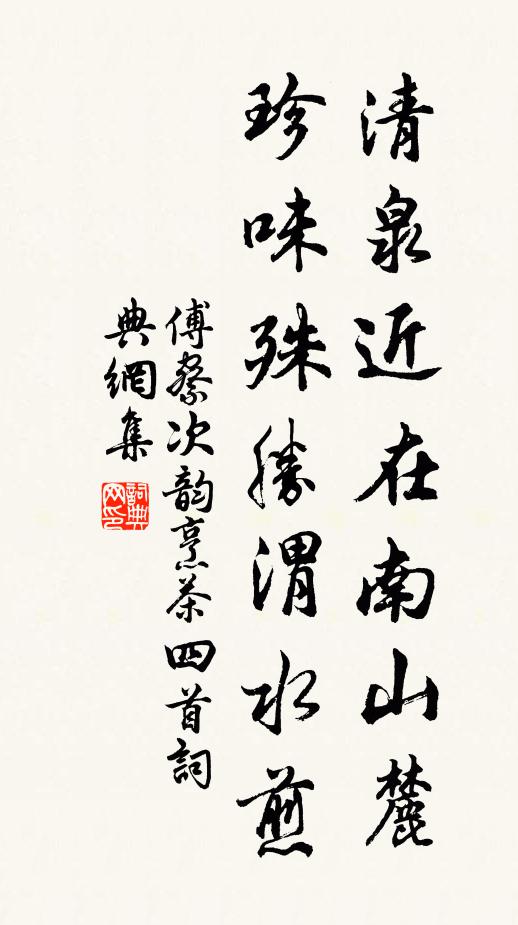 清泉近在南山麓
珍味殊勝渭水煎
傅察次韵烹茶四首詞
典網集
詞典网印